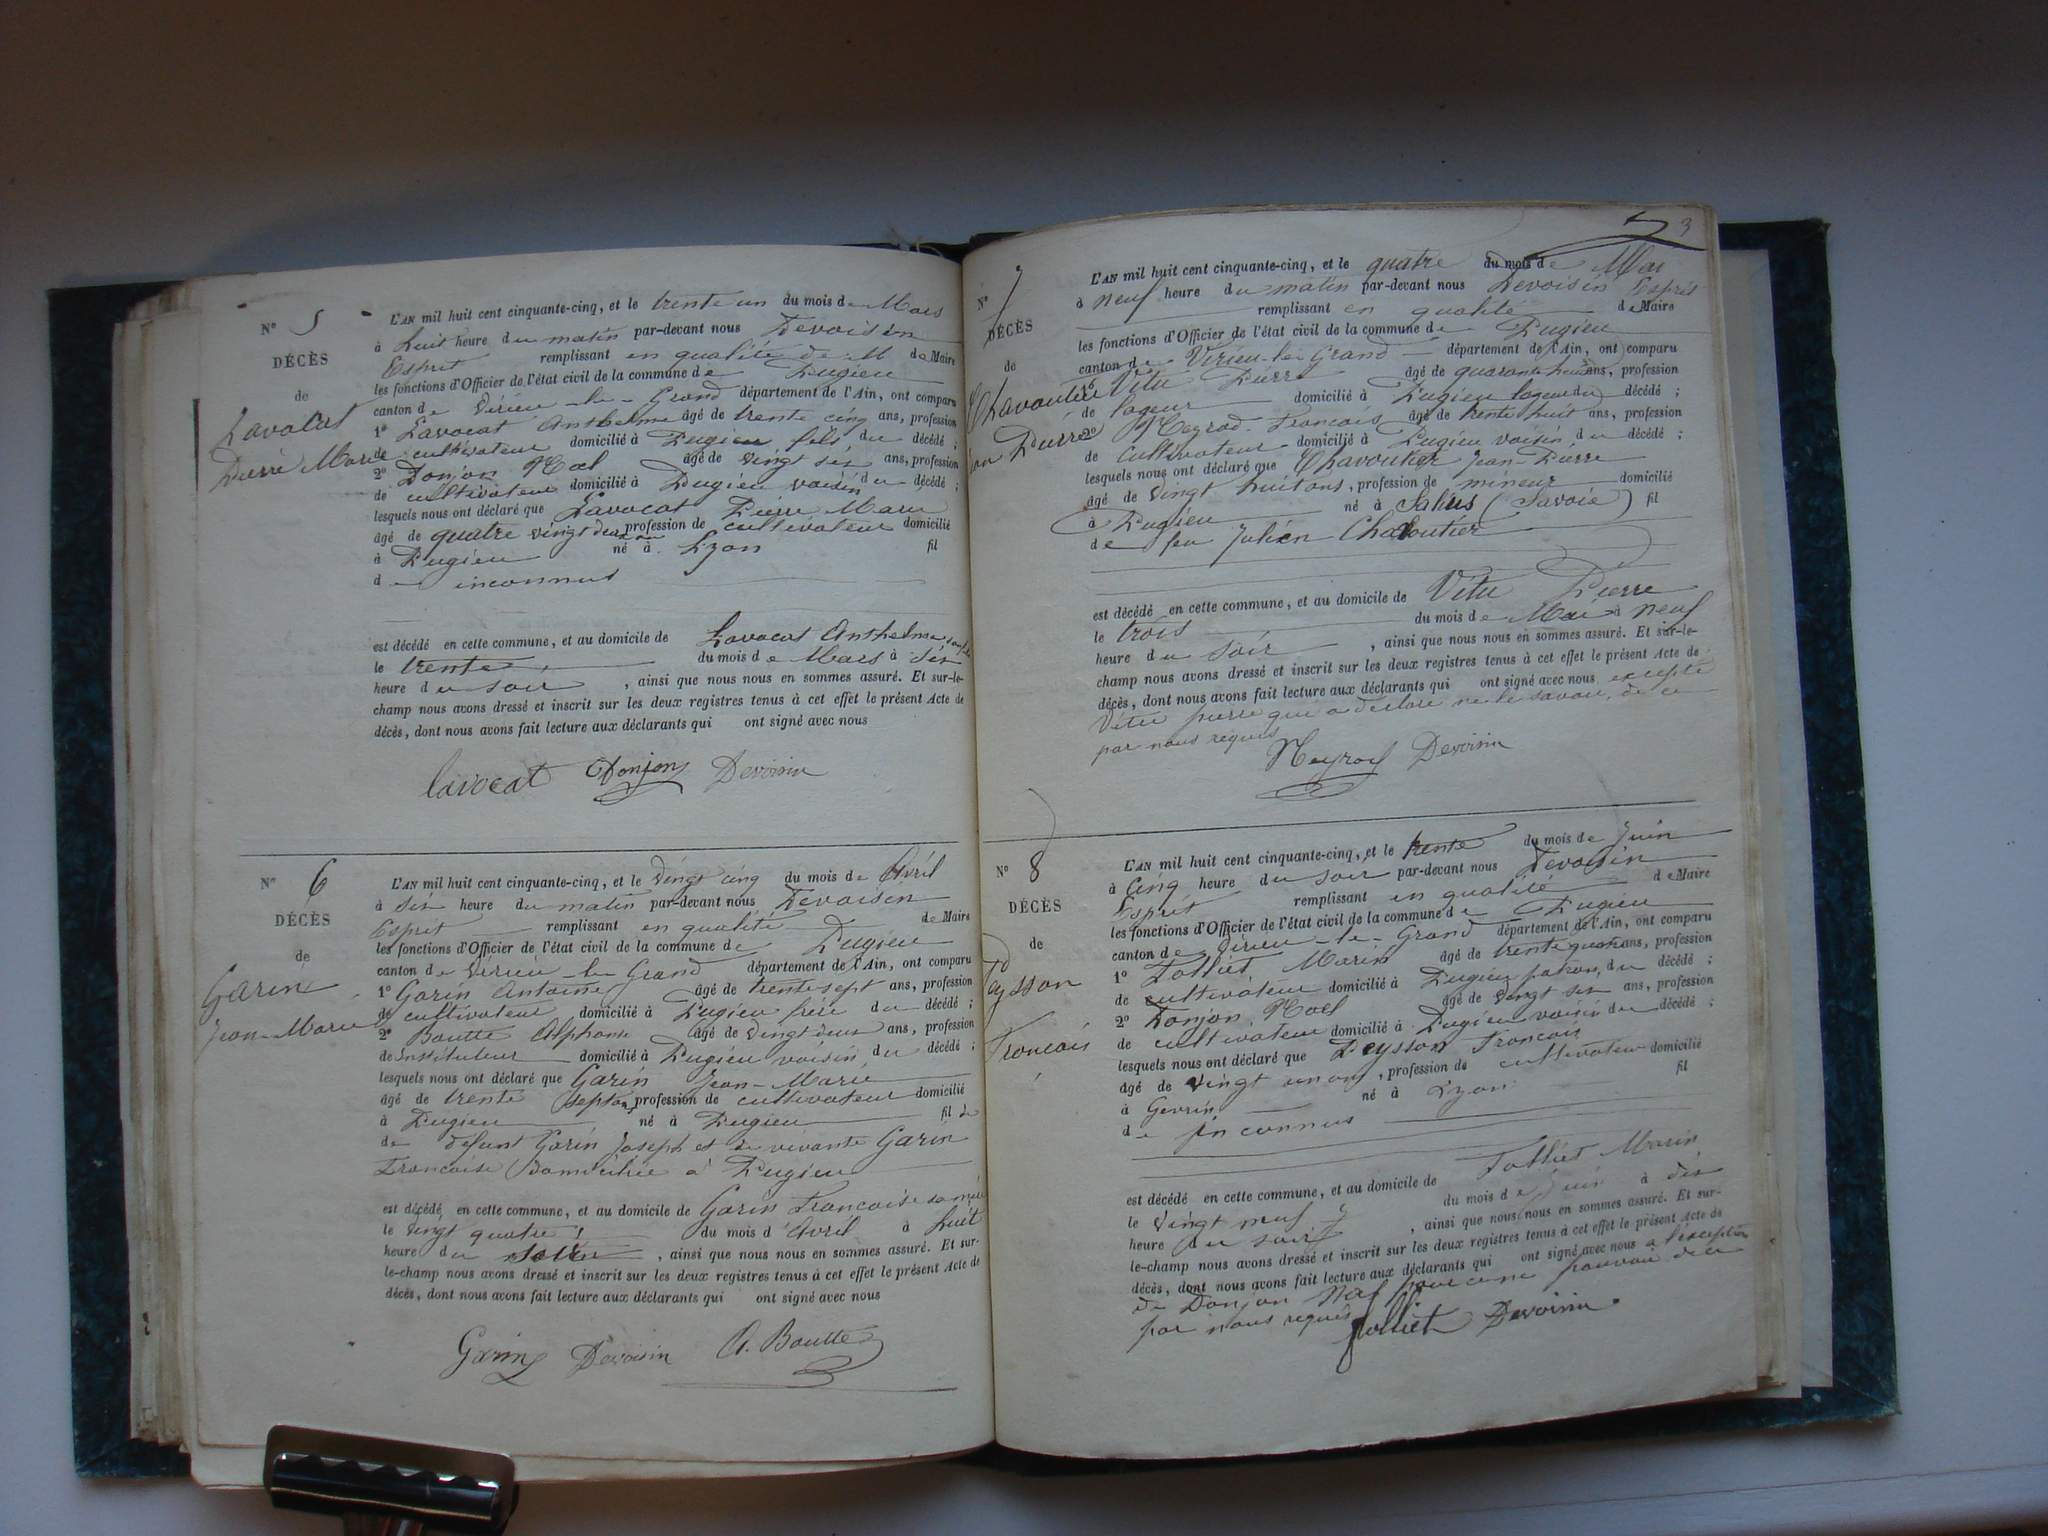 N° 5
DÉCÈS
de
Lavocat
Pierre Marie
L'AN mil huit cent cinquante-cinq, et le trente un du mois de Mars
à huit heure du matin par-devant nous Devoisin
Esprit remplissant en qualité de M de Maire
les fonctions d'Officier de l'état civil de la commune de Pugieu
canton de Virieu-le-Grand département de l'Ain, ont comparu
1° Lavocat Anthelme âgé de trente cinq ans, profession
de cultivateur domicilié à Pugieu fils du décédé ;
2° Donjon Noel âgé de vingt six ans, profession
de cultivateur domicilié à Pugieu voisin du décédé ;
lesquels nous ont déclaré que Lavocat Pierre Marie
âgé de quatre vingt deux ans profession de cultivateur domicilié
à Pugieu né à Lyon fil
de inconnus
est décédé en cette commune, et au domicile de Lavocat Anthelme son fils
le trente du mois de Mars à six
heure du soir, ainsi que nous nous en sommes assuré. Et sur-le-
champ nous avons dressé et inscrit sur les deux registres tenus à cet effet le présent Acte de
décès, dont nous avons fait lecture aux déclarants qui ont signé avec nous
lavocat Donjon Devoisin
N° 6
DÉCÈS
de
Garin
Jean-Marie
L'AN mil huit cent cinquante-cinq, et le vingt cinq du mois de Avril
à six heure du matin par-devant nous Devoisin
Esprit remplissant en qualité de Maire
les fonctions d'Officier de l'état civil de la commune de Pugieu
canton de Virieu-le-Grand département de l'Ain, ont comparu
1° Garin Antoine âgé de trente sept ans, profession
de cultivateur domicilié à Pugieu frère du décédé ;
2° Boutte Alphonse âgé de vingt deux ans, profession
de Instituteur domicilié à Pugieu voisin du décédé ;
lesquels nous ont déclaré que Garin Jean-Marie
âgé de trente sept ans profession de cultivateur domicilié
à Pugieu né à Pugieu fil de
de défunt Garin Joseph et de vivante Garin
Francoise domiciliée à Pugieu
est décédé en cette commune, et au domicile de Garin Francoise sa mère
le vingt quatre du mois d'Avril à huit
heure du soir, ainsi que nous nous en sommes assuré. Et sur-
le-champ nous avons dressé et inscrit sur les deux registres tenus à cet effet le présent Acte de
décès, dont nous avons fait lecture aux déclarants qui ont signé avec nous
Garin Devoisin A. Boutte
3
N° 7
DÉCÈS
de
Chavoutier
Jean Pierre
L'AN mil huit cent cinquante-cinq, et le quatre du mois de Mai
à neuf heure du matin par-devant nous Devoisin Esprit
remplissant en qualité de Maire
les fonctions d'Officier de l'état civil de la commune de Pugieu
canton de Virieu-le-Grand département de l'Ain, ont comparu
1° Vitu Pierre âgé de quarante huit ans, profession
de logeur domicilié à Pugieu logeur du décédé ;
2° Neyrod Francois âgé de trente huit ans, profession
de cultivateur domicilié à Pugieu voisin du décédé ;
lesquels nous ont déclaré que Chavoutier Jean-Pierre
âgé de vingt huit ans, profession de mineur domicilié
à Pugieu né à Salins (Savoie) fil
de feu Julien Chavoutier
est décédé en cette commune, et au domicile de Vitu Pierre
le trois du mois de Mai à neuf
heure du soir, ainsi que nous nous en sommes assuré. Et sur-le-
champ nous avons dressé et inscrit sur les deux registres tenus à cet effet le présent Acte de
décès, dont nous avons fait lecture aux déclarants qui ont signé avec nous excepté
Vitu pierre qui a déclaré ne le savoir, de ce
par nous requis
Neyrod Devoisin
N° 8
DÉCÈS
de
Peysson
Francois
L'AN mil huit cent cinquante-cinq, et le trente du mois de Juin
à cinq heure du soir par-devant nous Devoisin
Esprit remplissant en qualité de Maire
les fonctions d'Officier de l'état civil de la commune de Pugieu
canton de Virieu-le-Grand département de l'Ain, ont comparu
1° Jolliet Marin âgé de trente quatre ans, profession
de cultivateur domicilié à Pugieu patron du décédé ;
2° Donjon Noel âgé de vingt six ans, profession
de cultivateur domicilié à Pugieu voisin du décédé ;
lesquels nous ont déclaré que Peysson Francois
âgé de vingt un ans, profession de cultivateur domicilié
à Gevrin né à Lyon fil
de inconnus
est décédé en cette commune, et au domicile de Jolliet Marin
le vingt neuf du mois de Juin à dix
heure du soir, ainsi que nous nous en sommes assuré. Et sur-
le-champ nous avons dressé et inscrit sur les deux registres tenus à cet effet le présent Acte de
décès, dont nous avons fait lecture aux déclarants qui ont signé avec nous a l'exception
de Donjon Noel pour ne pouvoir de ce
par nous requis
Jolliet Devoisin